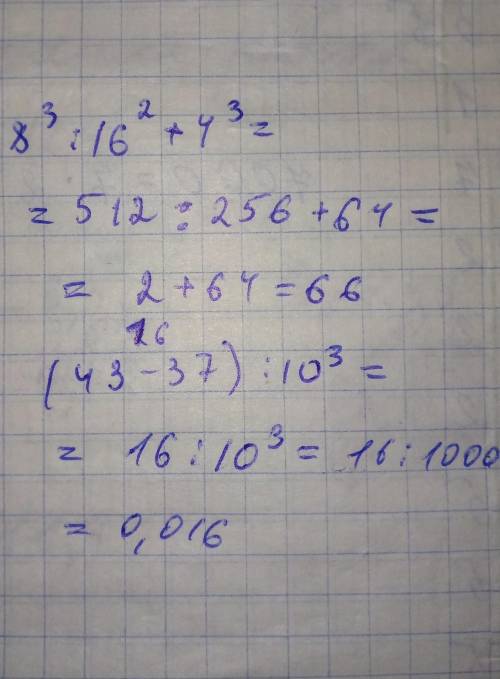 8³ : 16² + 4³ =
= 512 : 256 + 64 =
= 2 + 64 = 66
16
(43 - 37) : 10³ =
= 16 : 10³ = 16 : 1000
= 0,016